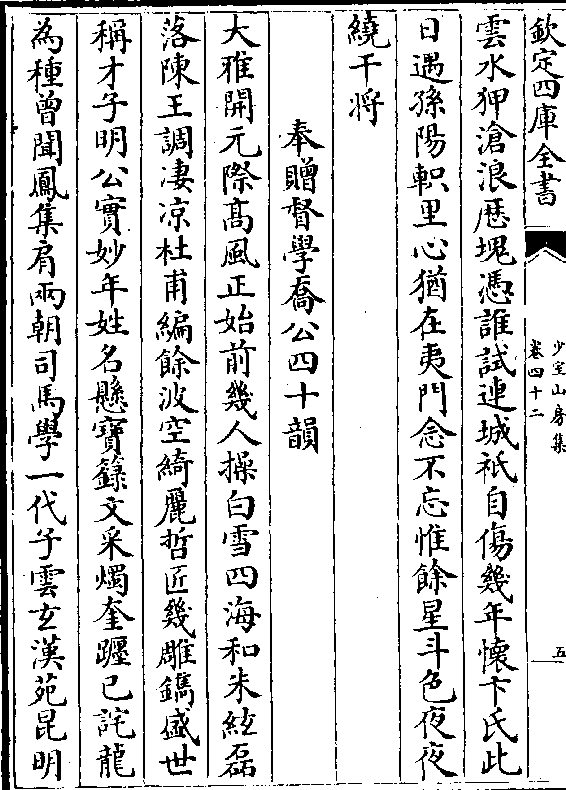 欽定四庫全書
少室山房集
卷四十二
五
雲水狎滄浪歴塊憑誰試連城祇自傷幾年懐卞氏此
日遇孫陽軹里心猶在夷門念不忘惟餘星斗色夜夜
繞干将
奉贈督學喬公四十韻
大雅開元際髙風正始前幾人操白雪四海和朱絃磊
落陳王調凄凉杜甫編餘波空綺麗哲匠幾雕鐫盛世
稱才子明公實妙年姓名懸寶籙文采燭奎躔已詫龍
為種曾聞鳳集肩兩朝司馬學一代子雲玄漢苑昆明